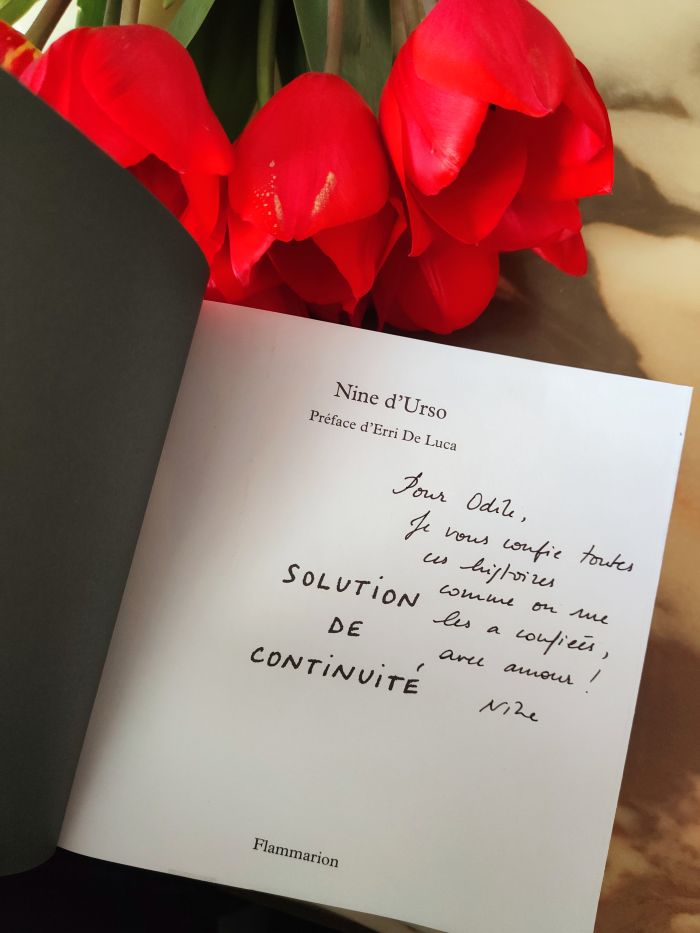 Nine d'Urso
Préface d'Erri De Luca
Pour Odile,
Je vous confie toutes
ces histoires
comme on me
les a confiées,
avec amour !
Nine
SOLUTION
DE
CONTINUITÉ
Flammarion